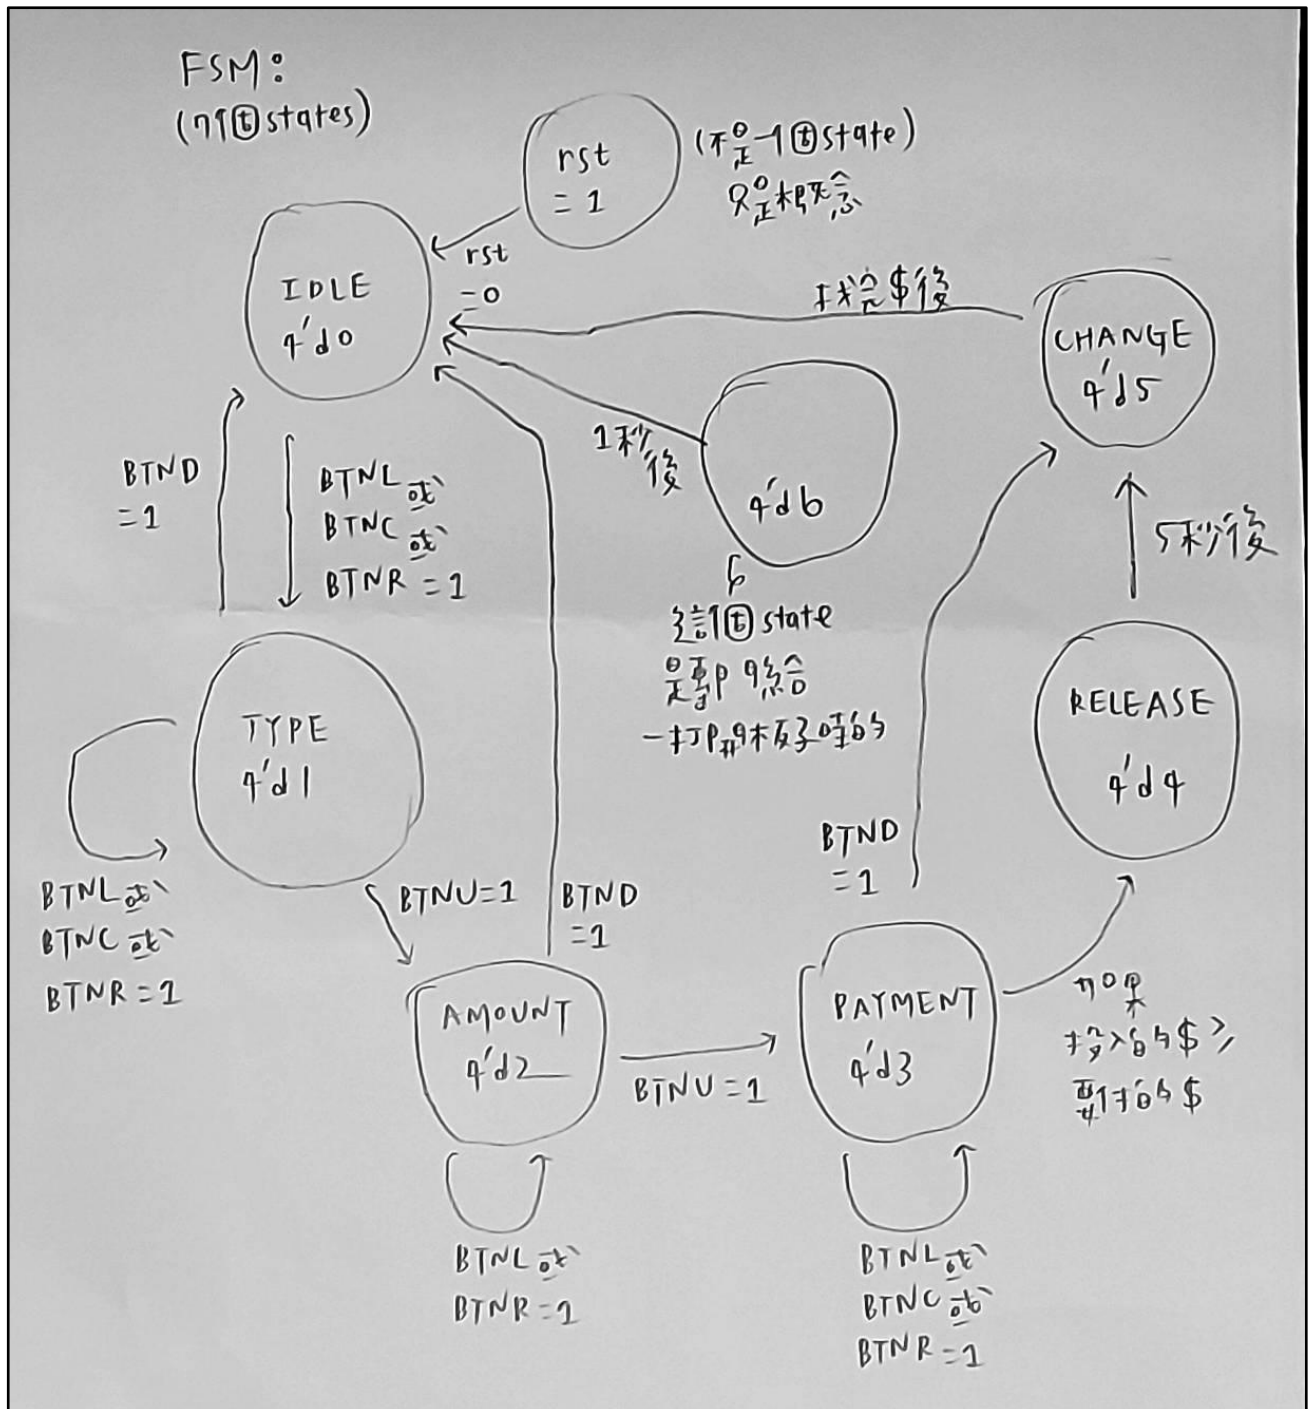 FSM:
(7個states)
rst
= 1
(不是一個state)
只是概念
rst
=0
IDLE
4'd0
找完$後
CHANGE
4'd5
1秒
後
4'd6
BTND
=1
BTNL或
BTNC或
BTNR=1
5秒後
這個state
是
一打開板子時的
TYPE
4'd1
RELEASE
4'd4
BTND
=1
BTNL或
BTNC或
BTNR=1
BTNU=1
BTND
=1
AMOUNT
4'd2
BTNU=1
PAYMENT
4'd3
如果
投入的$≥
要付的$
BTNL或
BTNR=1
BTNL或
BTNC或
BTNR=1